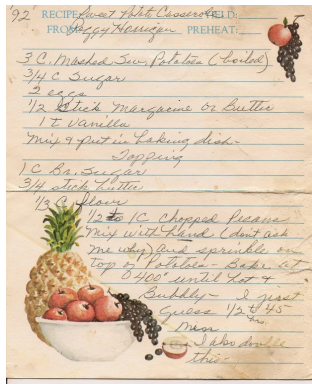 '92 RECIPE: Sweet Potato Casserole YIELD:
FROM: Peggy Herrigan PREHEAT:
3 C. Mashed Sw. Potatoes (boiled)
3/4 C Sugar
2 eggs
1/2 Stick Margarine or Butter
1 t Vanilla
Mix & put in baking dish-
Topping
1 C Br. Sugar
3/4 stick butter
1/3 C flour
1/2 to 1C Chopped Pecans
Mix with hand (dont ask
me why) and sprinkle on
top of Potatoes - Bake at
400° until hot &
Bubbly - I just
Guess 1/2 to 45
Min
I also double
this-